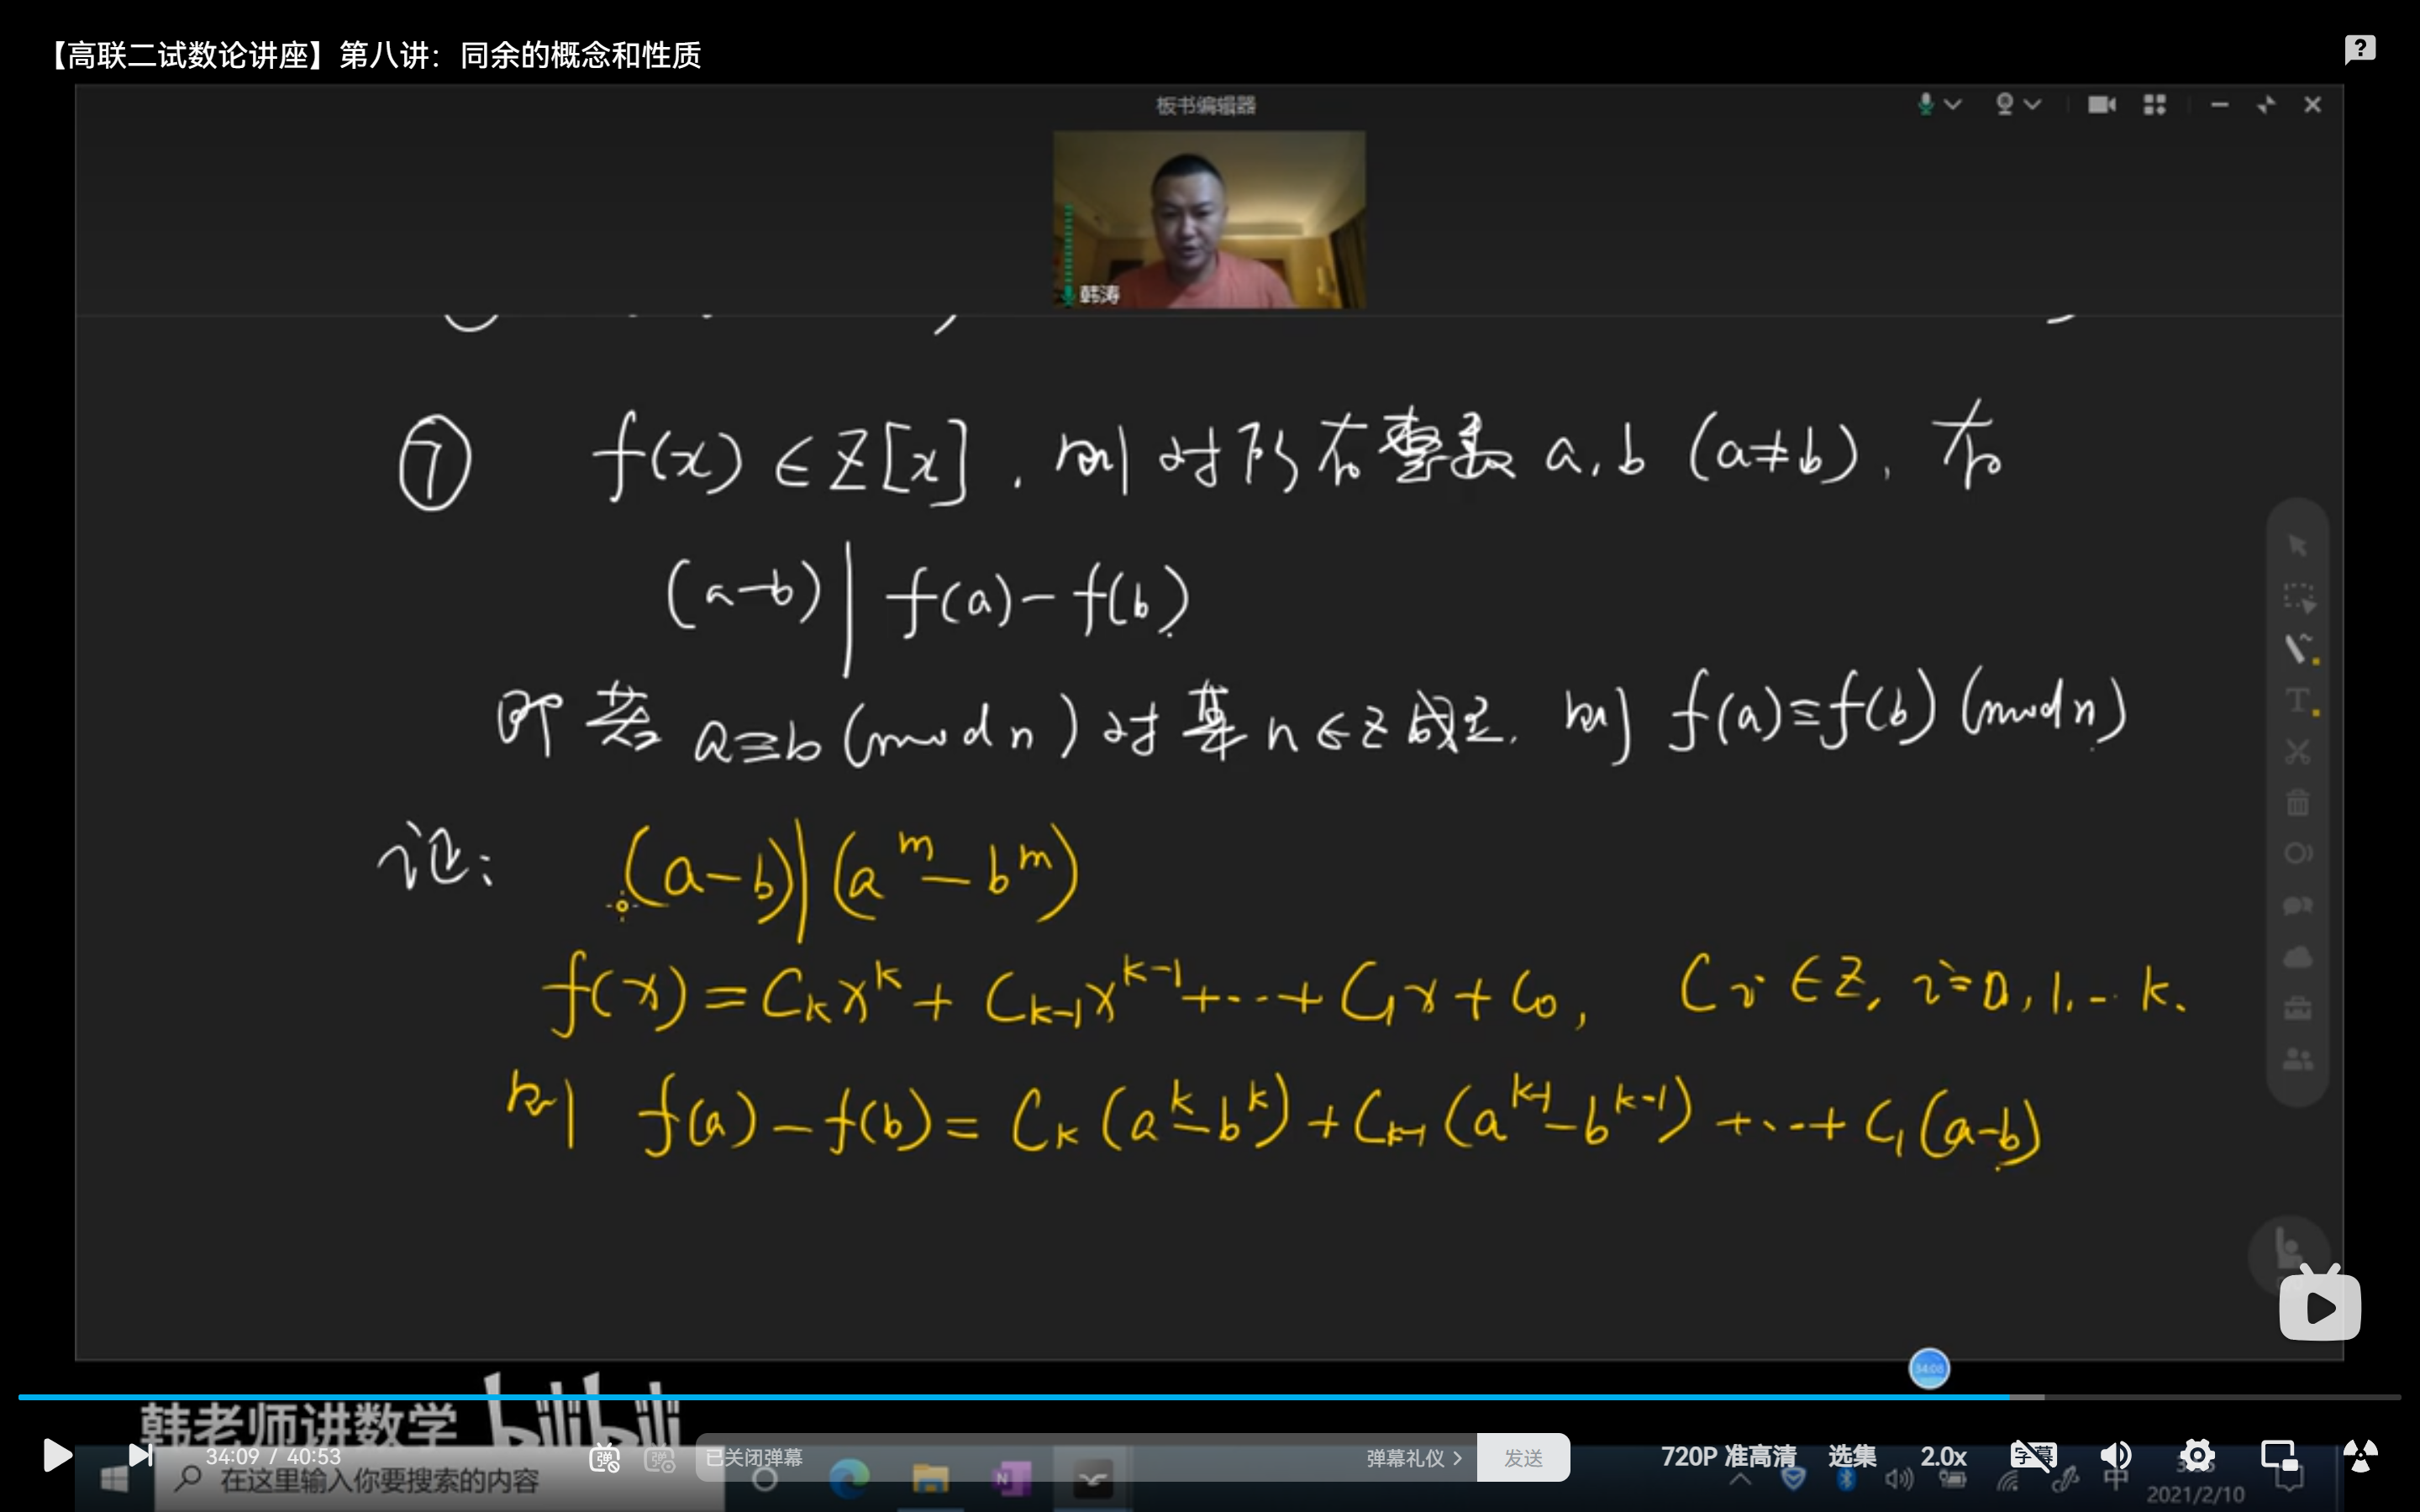 【高联二试数论讲座】第八讲：同余的概念和性质
板书编辑器
韩涛
⑦ f(x)∈Z[x]，则对所有整数 a,b (a≠b)，有
(a-b)|f(a)-f(b)
即若 a≡b (mod n) 对某 n∈Z 成立，则 f(a)≡f(b) (mod n)
证：(a-b)|(a^m-b^m)
f(x)=C_k x^k+C_{k-1} x^{k-1}+…+C_1 x+C_0, C_i∈Z, i=0,1,…k.
则 f(a)-f(b)=C_k(a^k-b^k)+C_{k-1}(a^{k-1}-b^{k-1})+…+C_1(a-b)
韩老师讲数学 bilibili
34:09 / 40:53 已关闭弹幕 弹幕礼仪 > 发送 720P 准高清 选集 2.0x 字幕
在这里输入你要搜索的内容 中
2021/2/10